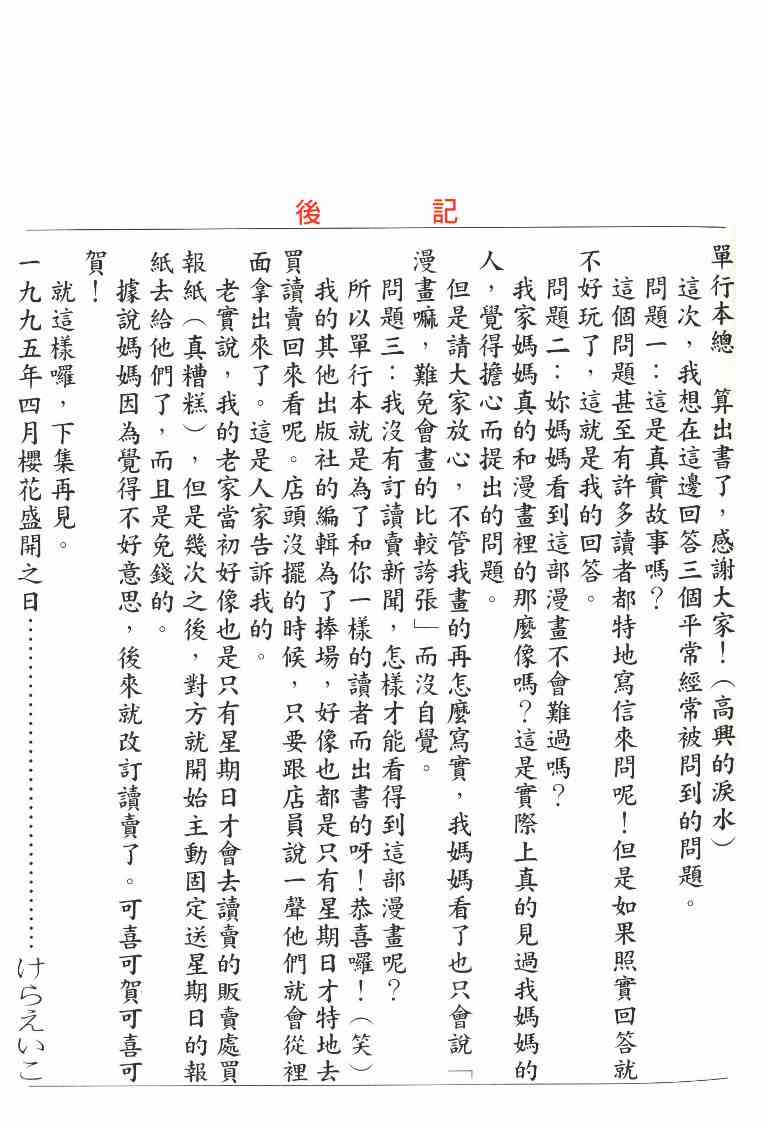 後記
單行本總 算出書了，感謝大家！（高興的淚水）
這次，我想在這邊回答三個平常經常被問到的問題。
問題一：這是真實故事嗎？
這個問題甚至有許多讀者都特地寫信來問呢！但是如果照實回答就
不好玩了，這就是我的回答。
問題二：妳媽媽看到這部漫畫不會難過嗎？
我家媽媽真的和漫畫裡的那麼像嗎？這是實際上真的見過我媽媽的
人，覺得擔心而提出的問題。
但是請大家放心，不管我畫的再怎麼寫實，我媽媽看了也只會說「
漫畫嘛，難免會畫的比較誇張」而沒自覺。
問題三：我沒有訂讀賣新聞，怎樣才能看得到這部漫畫呢？
所以單行本就是為了和你一樣的讀者而出書的呀！恭喜囉！（笑）
我的其他出版社的編輯為了捧場，好像也都是只有星期日才特地去
買讀賣回來看呢。店頭沒擺的時候，只要跟店員說一聲他們就會從裡
面拿出來了。這是人家告訴我的。
老實說，我的老家當初好像也是只有星期日才會去讀賣的販賣處買
報紙（真糟糕），但是幾次之後，對方就開始主動固定送星期日的報
紙去給他們了，而且是免錢的。
據說媽媽因為覺得不好意思，後來就改訂讀賣了。可喜可賀可喜可
賀！
就這樣囉，下集再見。
一九九五年四月櫻花盛開之日……………………………けらえいこ